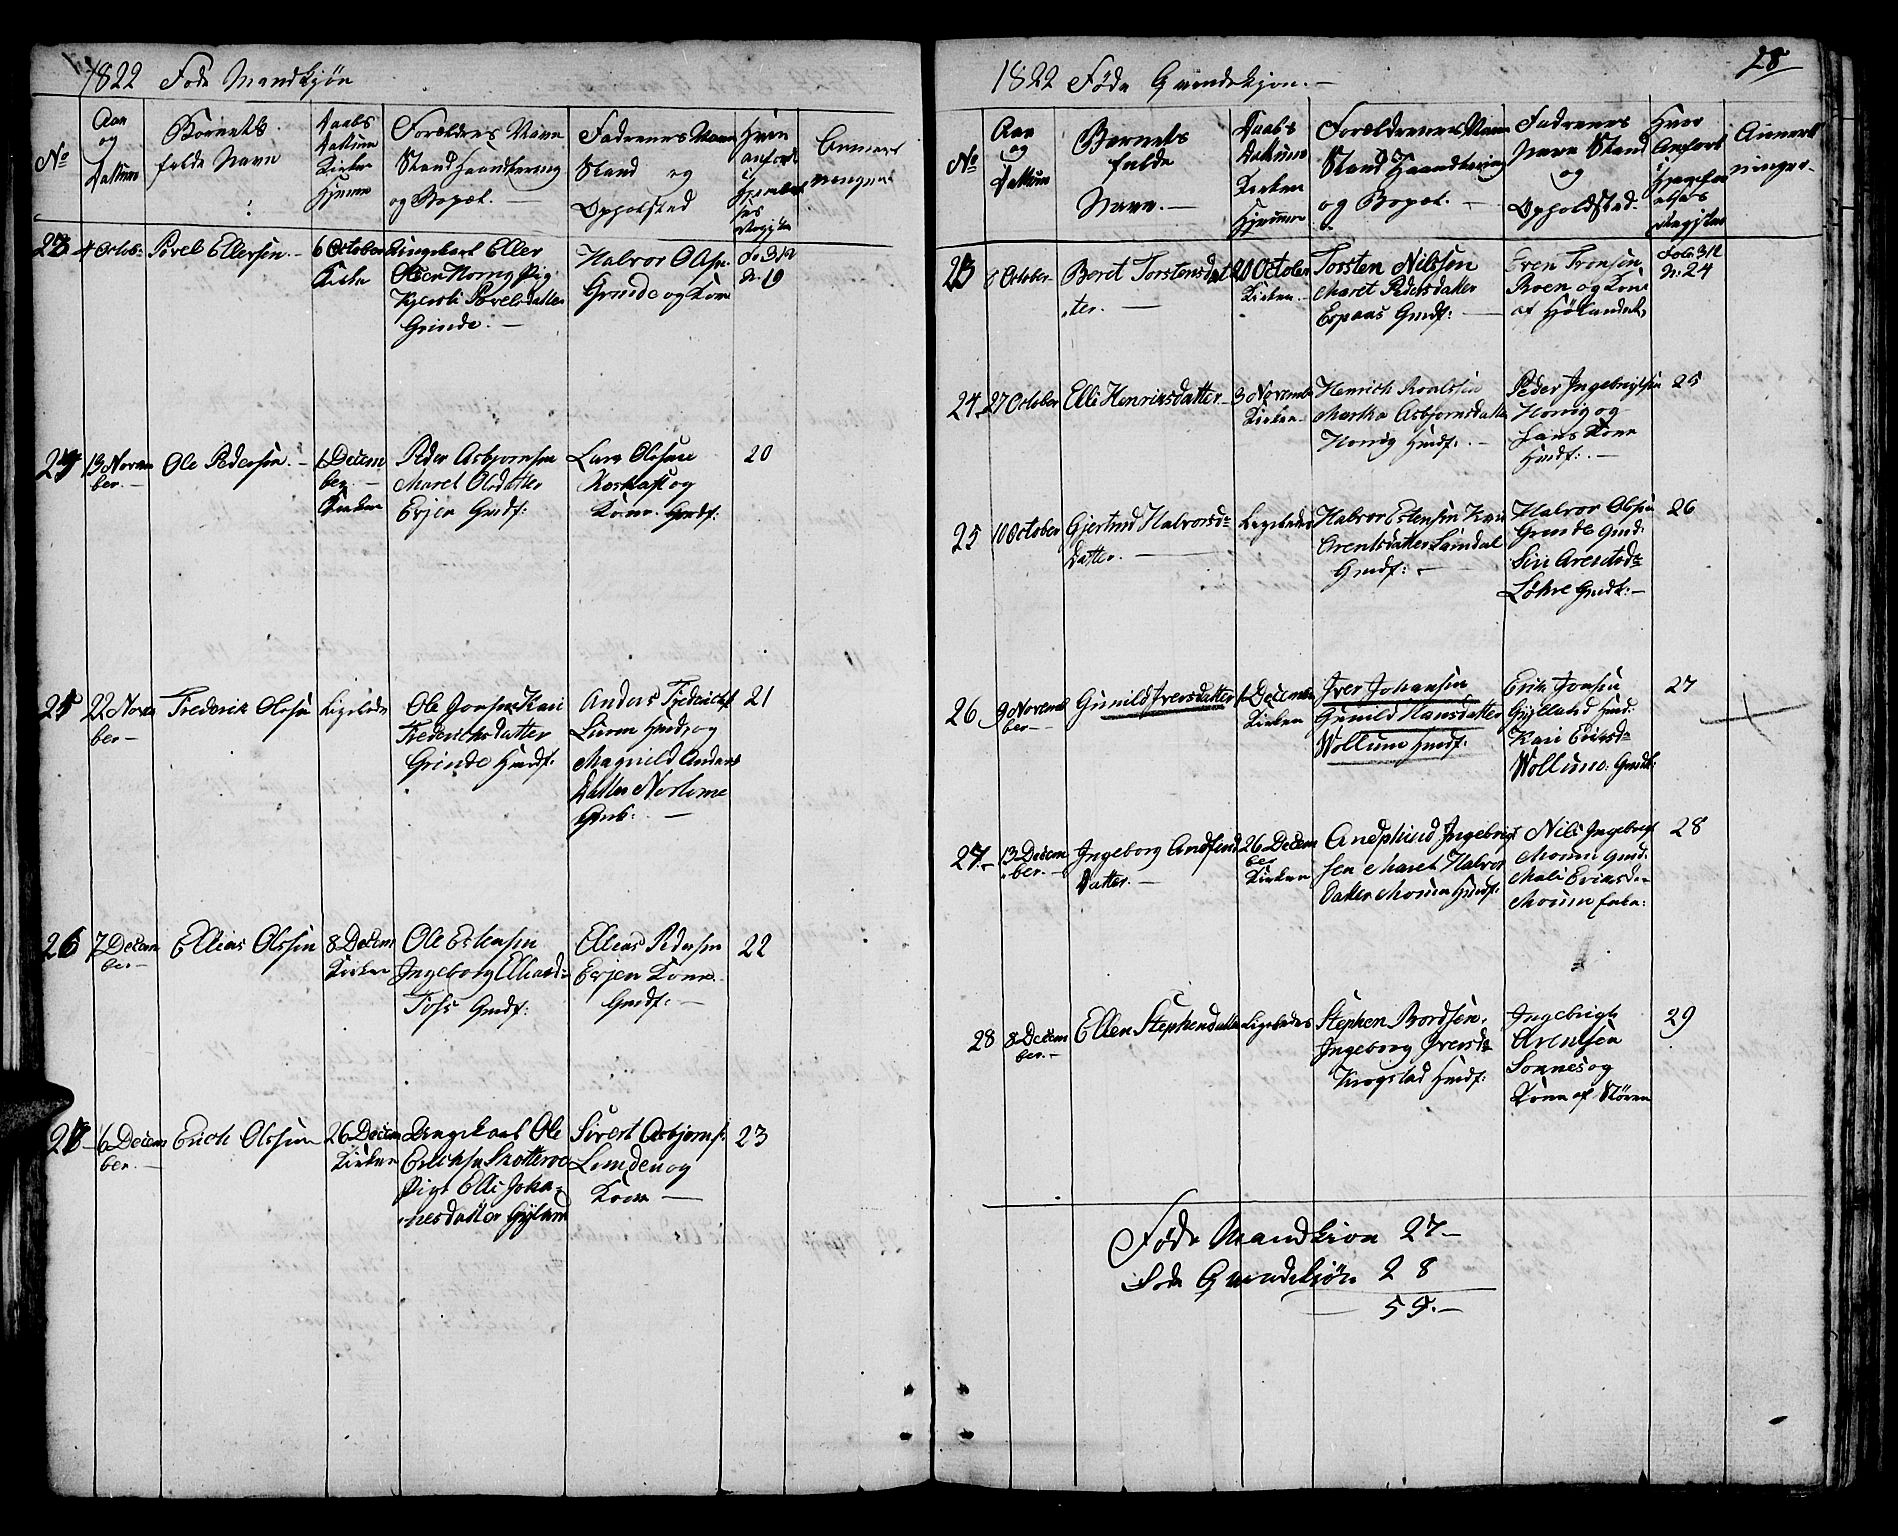 1822 Føde Mandkjøn
No
Aar
og
Dattum
Barnets
fulde Navn
Daabs
Dattum
Kirken
Hjemme
Forældres Navn
Stand Haandtering
og Bopæl. —
Fadrenes Navn
Stand og
Opholsted
Hvor
anført
Jevnførel
ses
Register
Anmærk
ninger
23
4 Octob:
Povel Ellersen. —
6 October
Kirken
Ungekarl Eller
Olsen Horrig Pig
Kjersti Povelsdatter
Grinde. —
Halvor Olsen
Grinde og Kone
No 19
24
13 Novem
ber. —
Ole Pedersen. —
1 Decem
ber. —
Kirken
Peder Asbjørnsen
Maret Olsdatter
Evjen Gmdf:
Lars Olsen
og
Kone. Gmdf:
20
25
22 Novem
ber —
Frederik Olsen
Ligeledes
Ole Jonsen Kari
Frederichsdatter
Grinde Hmdf:
Anders Frederichs
Hmdf og
Magnild Anders
Datter
21
26
7 Decem
ber —
Ellias Olsen
8 Decem
Kirken
Ole Estensen
Ingeborg Elliasd:
Gmdf:
Ellias Pedersen
Evjen Kone
Gmdf: —
22
27
6 Decem
ber. —
Erich Olsen
26 Decem
Kirken
Ungekarl Ole
Erichsen Skotteroe
Pige Elli Joha=
nnesdatter Gylland
Sivert Asbjørns:
Lunden og
Kone —
23
28
1822 Føde Qvindekjøn. —
No
Aar
og
Dattum
Barnets
fulde
Navn. —
Daabs
Dattum
Kirken
Hjemme
Forældrenes Navn
Stand Haandtering
og Bopæl. —
Fadrenes
Navn Stand
og
Opholdsted.
Hvor
Anført
Jevnfør
elses
Register
Anmærk
ninger.
23
6 October
Beret Torstensdat
ter. —
20 October
Kirken. —
Torsten Nilssen
Maret Pedersdatter
Espaas Gmdf: —
Even Tronsen
Roen og Kone
af Hølandet,
Folie 312
N: 24
24
27 October
Elli Henriksdatter —
3 Novembr
Kirken —
Henrich Roalssen
Martha Asbjørnsdatter
Horrig Hmdf: —
Peder Ingebrigtsen
Horrig og
Hans Kone
Hmdf: —
25
25
10 October
Gjertrud Halvorsd=
Datter. —
Ligeledes
Halvor Estensen Kari
Arentsdatter Samdal
Gmdf: —
Halvor Olsen
Grinde Gmd:
Siri Arentsd=
Løhre Gmdf: —
26
26
9 Novem
ber —
Gunild Iversdatter
1 Decembr
Kirken
Iver Johansen
Gunild Hansdatter
Wollum Hmdf:
Erik Jonsen
Gylland Hmd:
Kari Eriksd=
Wollum: Gmdf:
27
27
13 Decem
ber. —
Ingeborg Andfind
Datter. —
26 Decem
ber
Kirken
Andphind Ingebrigt
sen Maret Halvor
Datter Moum Hmdf:
Nils Ingebrigt
Moum Gmd:
Mali Eriksd=
Moum
28
28
8 Decem
ber. —
Ellen Stephensdatter
Ligeledes
Stephen Bordsen.
Ingeborg Iversd=
Krogstad Hmdf:
Ingebrigt
Arentsen
Sonnes og
Kone af Støren
29
Føde Mandkiøn 27 —
Føde Qvindekiøn 28
55. —